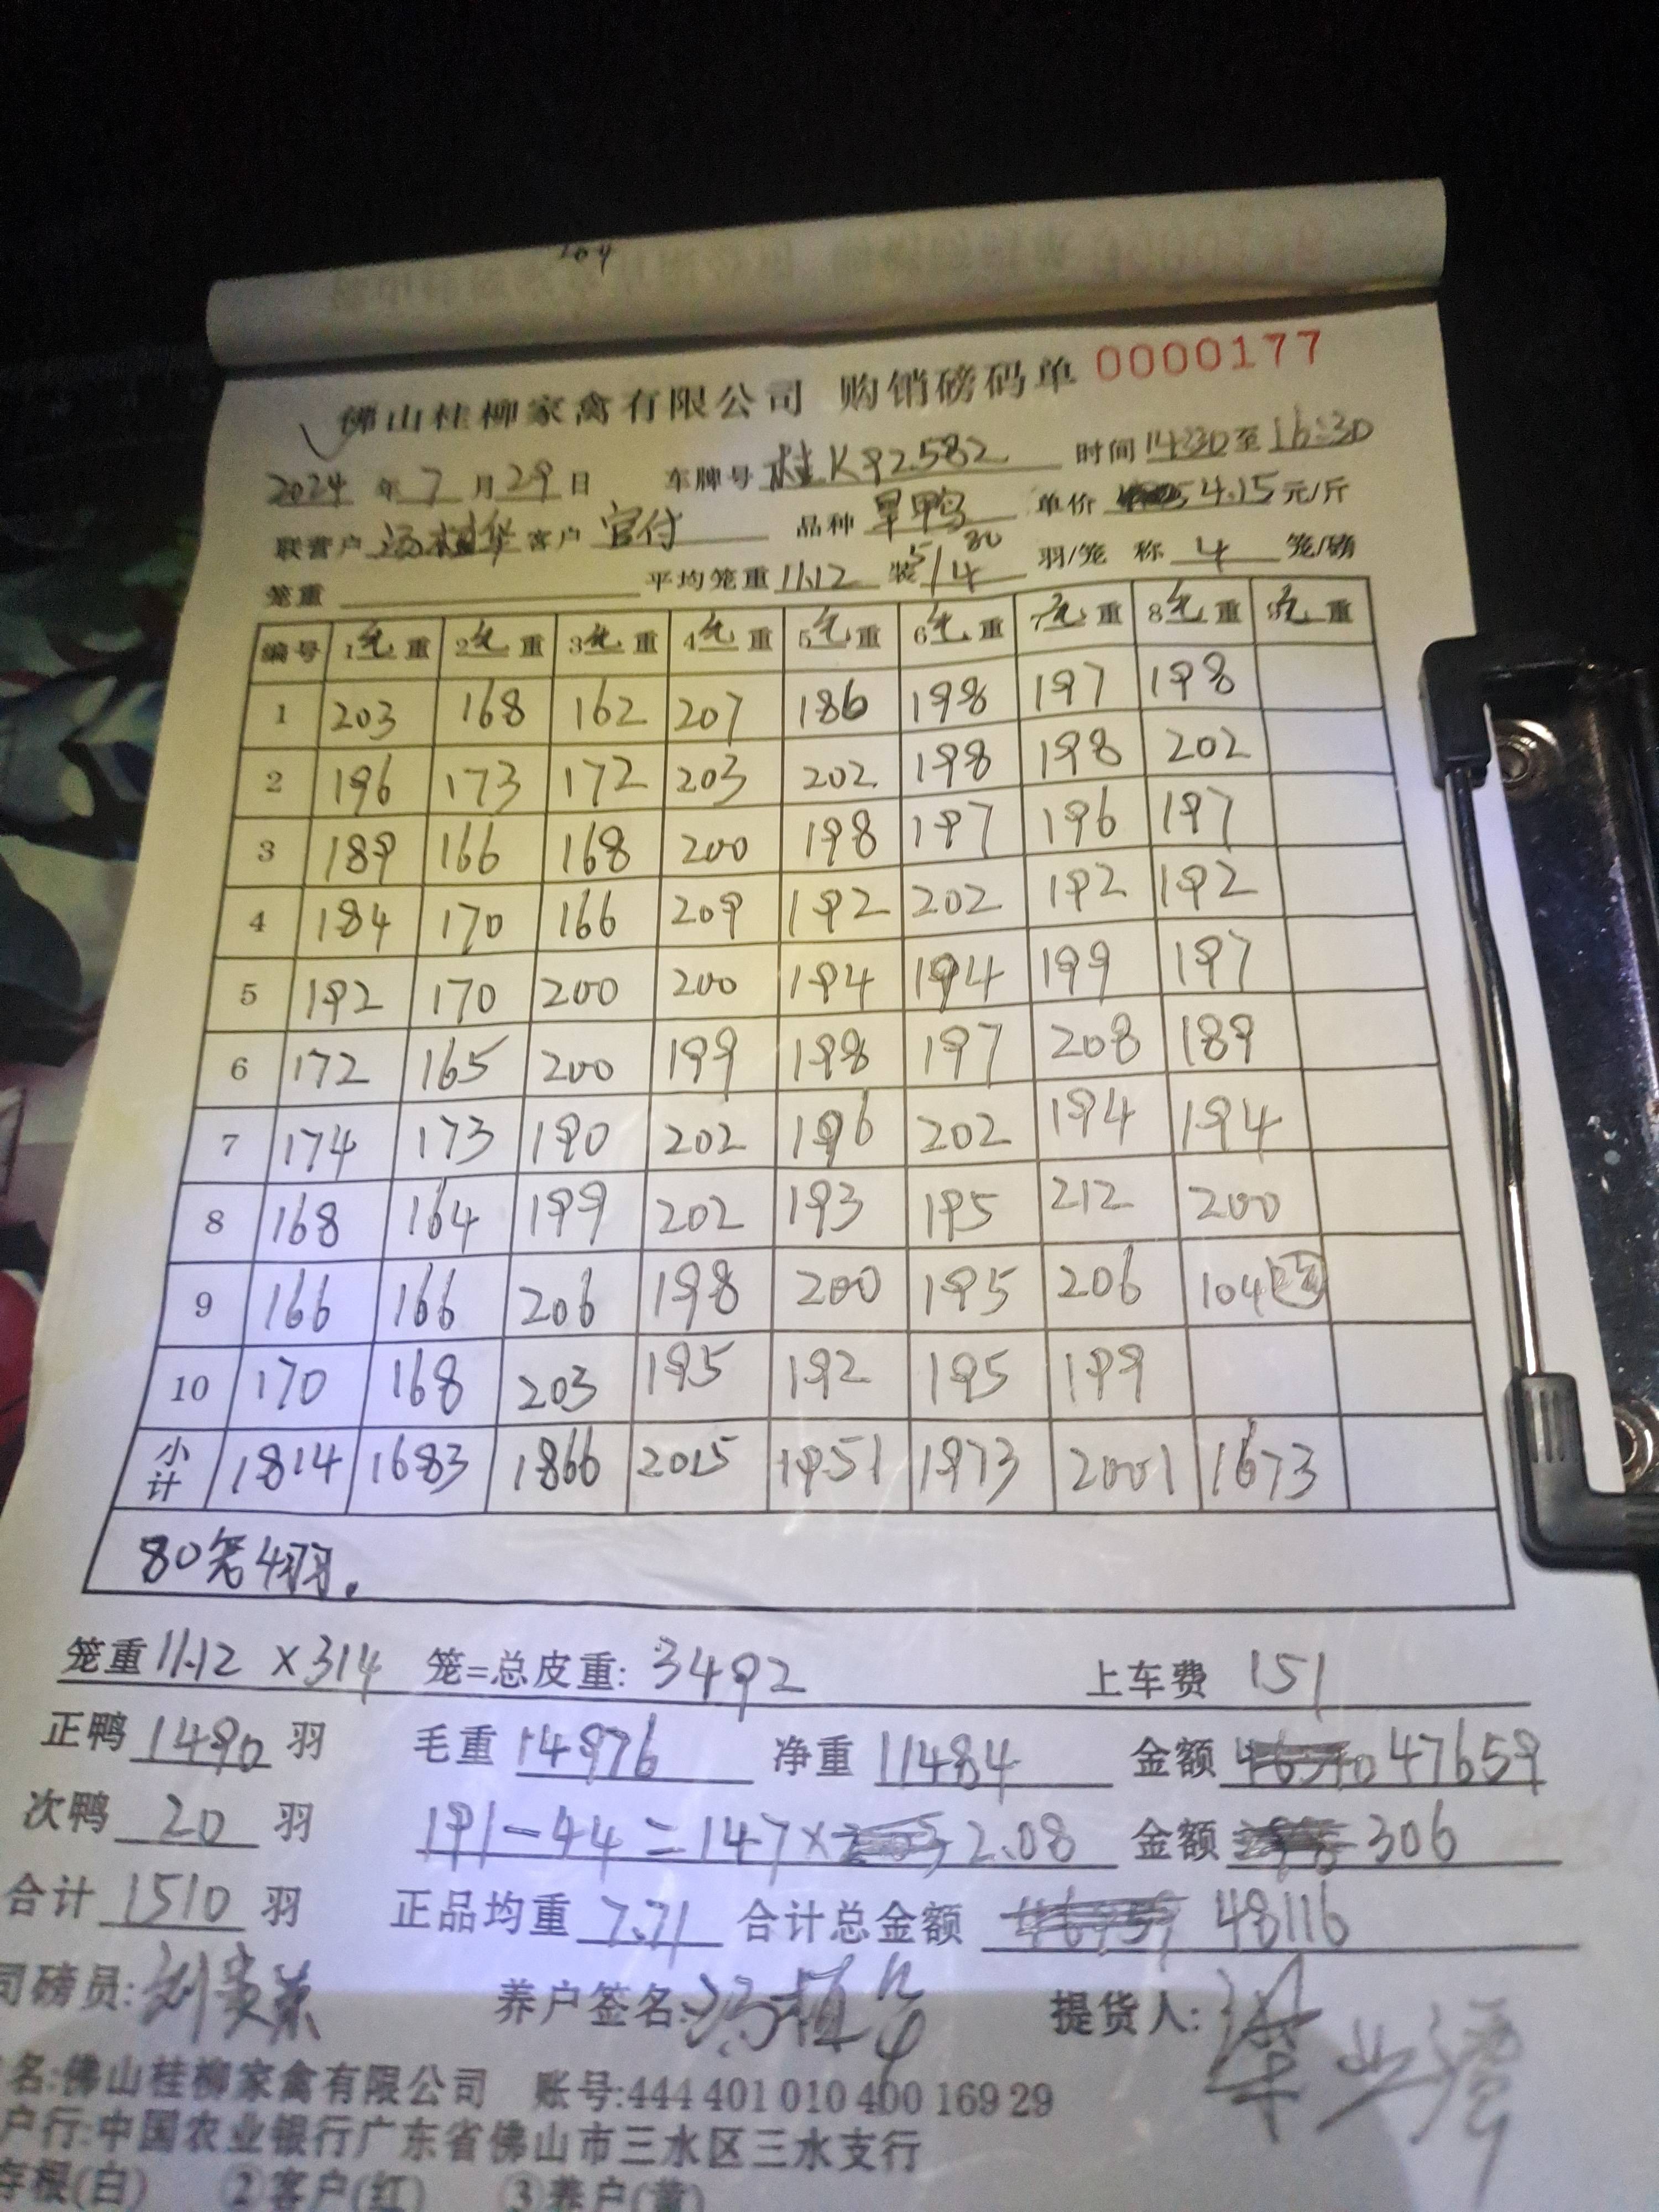 佛山桂柳家禽有限公司 购销磅码单 0000177
2024 年 7 月 29 日 车牌号 桂K92582 时间 14:30 至 16:30
联营户 客户 官付 品种 旱鸭 单价 4.15 元/斤
笼重 平均笼重 11.12 装 5/4 80 羽/笼 称 4 笼/磅
编号 1毛重 2毛重 3毛重 4毛重 5毛重 6毛重 7毛重 8毛重 9毛重
1 203 168 162 207 186 198 197 198
2 196 173 172 203 202 198 198 202
3 189 166 168 200 198 197 196 197
4 184 170 166 209 192 202 192 192
5 192 170 200 200 194 194 199 197
6 172 165 200 199 198 197 208 189
7 174 173 190 202 196 202 194 194
8 168 164 199 202 193 195 212 200
9 166 166 206 198 200 195 206 104
10 170 168 203 195 192 195 199
小计 1814 1683 1866 2015 1951 1973 2001 1673
80笼4羽.
笼重 11.12 × 314 笼=总皮重: 3492 上车费 151
正鸭 1490 羽 毛重 14976 净重 11484 金额 47659
次鸭 20 羽 191-44=147× 2.08 金额 306
合计 1510 羽 正品均重 7.71 合计总金额 48116
司磅员: 养户签名: 提货人:
名:佛山桂柳家禽有限公司 账号:444 401 010 400 169 29
户行:中国农业银行广东省佛山市三水区三水支行
存根(白) ②客户(红) ③养户(黄)